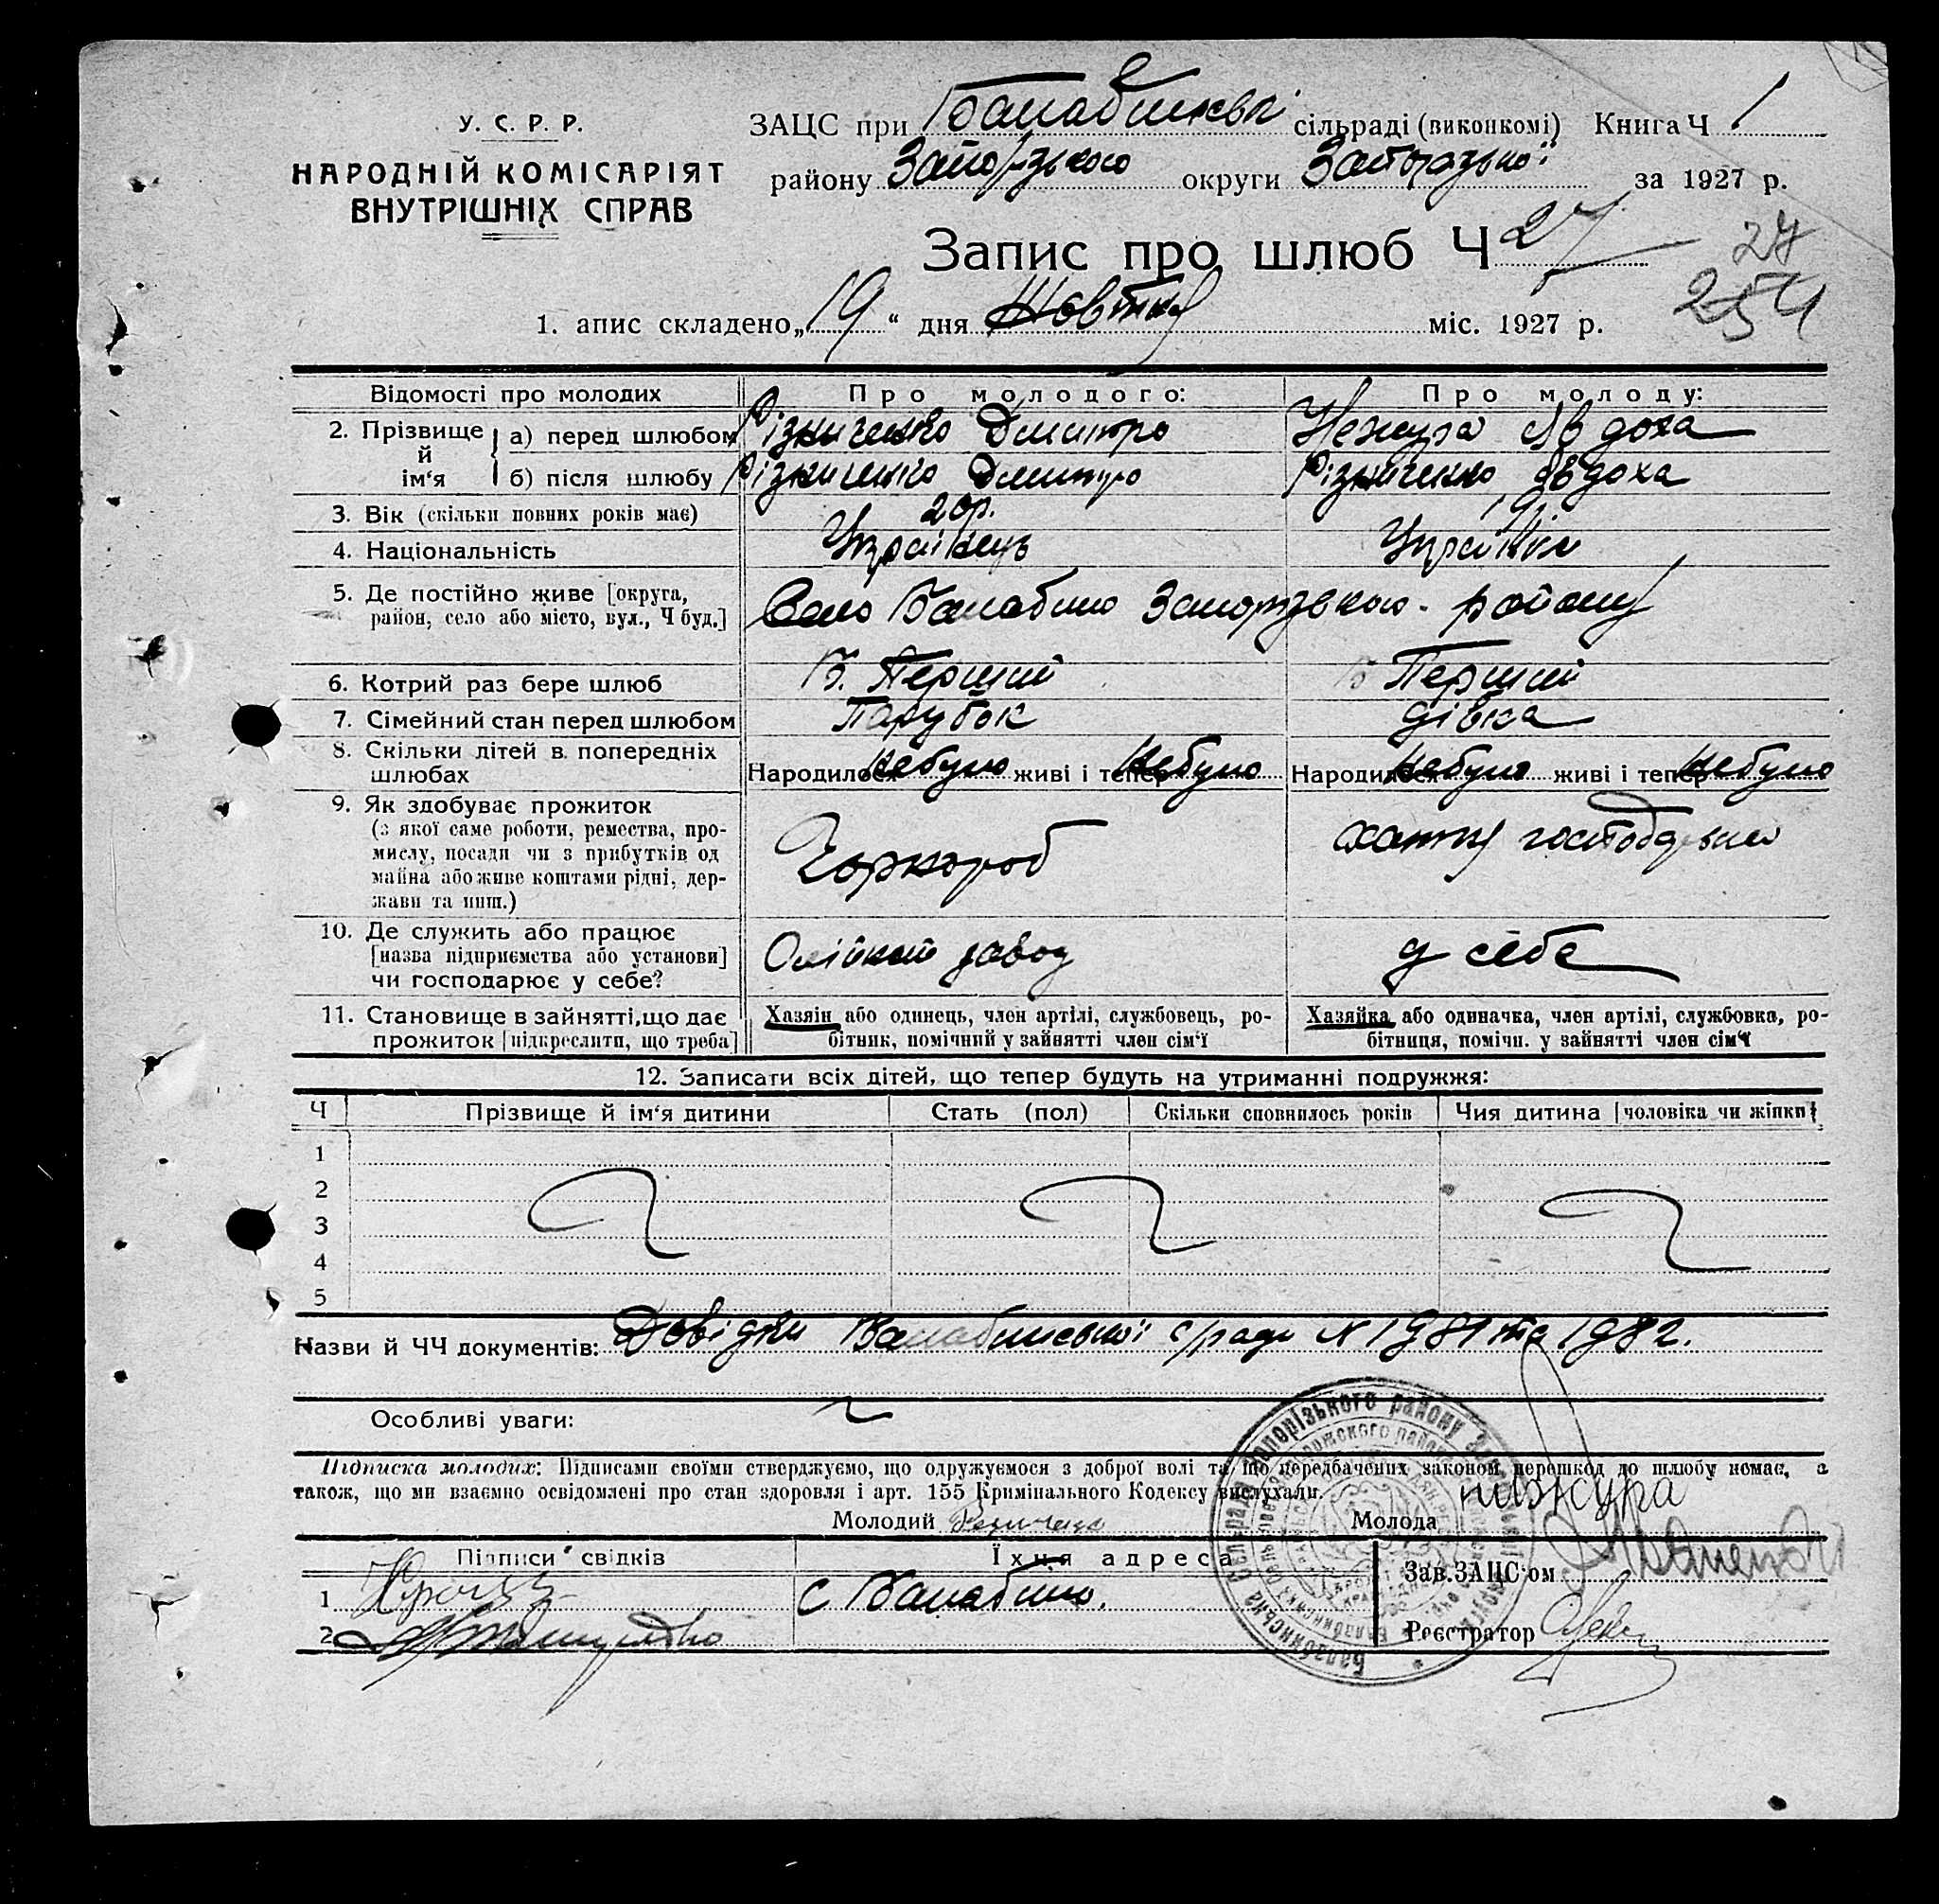 У. С. Р. Р.
НАРОДНІЙ КОМІСАРІЯТ
ВНУТРІШНІХ СПРАВ
ЗАЦС при сільраді (виконкомі) Книга Ч 1
району Запорізького округи Запорізької за 1927 р.
Запис про шлюб Ч 27
27
254
1. апис складено „19“ дня Жовтня міс. 1927 р.
Відомості про молодих Про молодого: Про молоду:
2. Прізвище й ім‘я а) перед шлюбом Різниченко Дмитро Нежура Явдоха
б) після шлюбу Різниченко Дмитро Різниченко Явдоха
3. Вік (скільки повних років має) 20р. 19
4. Національність Українець Українка
5. Де постійно живе [округа,
район, село або місто, вул., Ч буд.] Село Балабино Запорізького району
6. Котрий раз бере шлюб Перший Перший
7. Сімейний стан перед шлюбом Парубок дівка
8. Скільки літей в попередніх
шлюбах Народилося небуло живі і тепер небуло Народилося небуло живі і тепер небуло
9. Як здобуває прожиток
(з якої саме роботи, ремества, про-
мислу, посади чи з прибутків од
майна або живе коштами рідні, дер-
жави та инш.)
Чорнороб
10. Де служить або працює
[назва підприємства або установи]
чи господарює у себе?
Олійний завод у себе
11. Становище в зайнятті, що дає
прожиток [підкреслити, що треба]
Хазяїн або одинець, член артілі, службовець, ро-
бітник, помічний у зайнятті член сім‘ї
Хазяйка або одиначка, член артілі, службовка, ро-
бітниця, помічн. у зайнятті член сім‘ї
12. Записати всіх дітей, що тепер будуть на утриманні подружжя:
Ч Прізвище й ім‘я дитини Стать (пол) Скільки сповнилось років Чия дитина [чоловіка чи жінки]
1
2
3
4
5
Назви й ЧЧ документів: Довідки Балабинської с/ради N 1981 та 1982.
Особливі уваги:
Підписка молодих: Підписами своїми стверджуємо, що одружуємося з доброї волі та що передбачених законом перешкод до шлюбу немає, а
також, що ми взаємно освідомлені про стан здоровля і арт. 155 Кримінального Кодексу вислухали.
Молодий Молода нижура
Підписи свідків Їхня адреса Зав. ЗАЦС‘ом
1 с Балабино.
2 Реєстратор